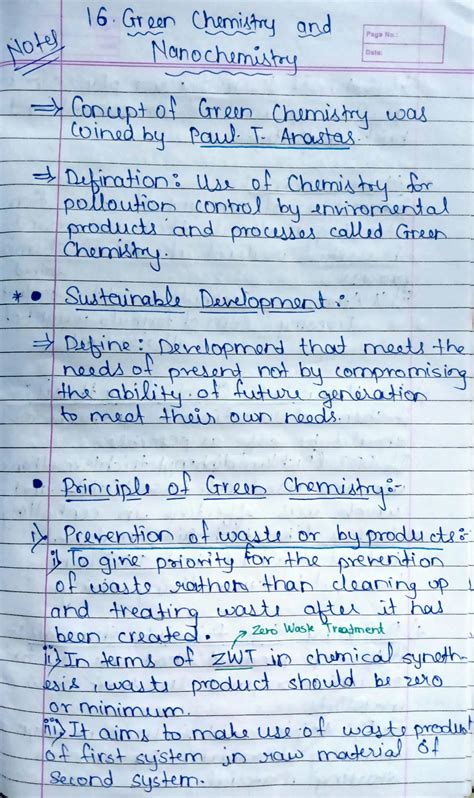 16. Green Chemistry and
Page No.:
Notes
Nanochemistry
Date:
⇒ Concept of Green Chemistry was
coined by Paul T. Anastas.
⇒ Defination: Use of Chemistry for
polloution control by enviromental
products and processes called Green
Chemistry.
* • Sustainable Development :
⇒ Define : Development that meets the
needs of present not by compromising
the ability of future generation
to meat their own needs.
• Principle of Green Chemistry:-
i) Prevention of waste or byproducts:-
i) To give priority for the prevention
of waste rather than cleaning up
and treating waste after it has
been created. → Zero Waste Treatment
ii) In terms of ZWT in chemical syneth-
esis, waste product should be zero
or minimum.
iii) It aims to make use of waste product
of first system in raw material of
second system.